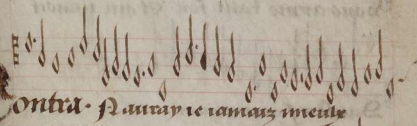 ontra. N auray ie iamaiz mieulx